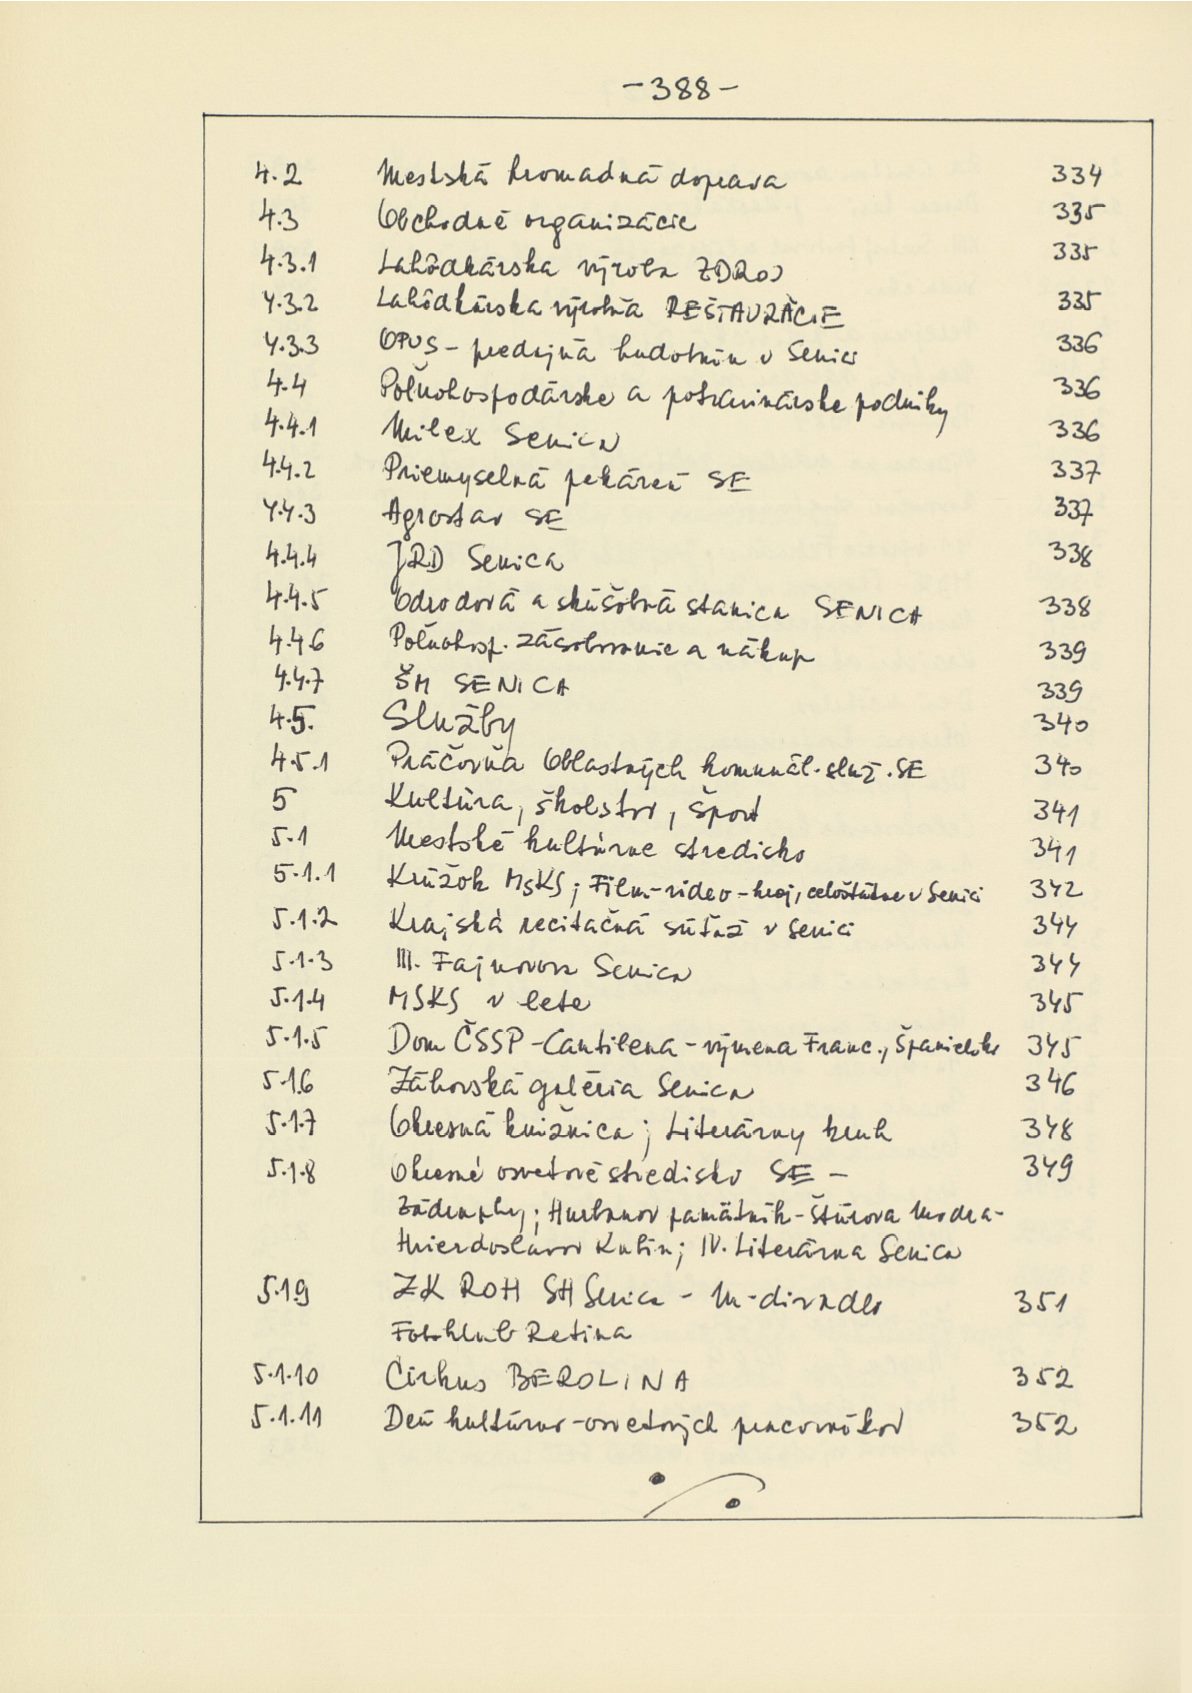 -388-
4.2 Mestská hromadná doprava 334
4.3 Obchodné organizácie 335
4.3.1 Lahôdkárska výroba ZDROJ 335
4.3.2 Lahôdkárska výrobňa REŠTAURÁCIE 335
4.3.3 OPUS - predajňa hudobnín v Senici 336
4.4 Poľnohospodárske a potravinárske podniky 336
4.4.1 Milex Senica 336
4.4.2 Priemyselná pekáreň SE 337
4.4.3 Agrostav SE 337
4.4.4 JRD Senica 338
4.4.5 Odrodová a skúšobná stanica SENICA 338
4.4.6 Poľnohosp. zásobovanie a nákup 339
4.4.7 ŠM SENICA 339
4.5. Služby 340
4.5.1 Práčovňa Oblastných komunál. služ. SE 340
5 Kultúra, školstvo, šport 341
5.1 Mestské kultúrne stredisko 341
5.1.1 Krúžok MsKS; Film-video-kraj, celoštátne v Senici 342
5.1.2 Krajská recitačná súťaž v Senici 344
5.1.3 III. Fajnorova Senica 344
5.1.4 MSKS v lete 345
5.1.5 Dom ČSSP - Cantilena - výmena Franc., Španielsko 345
5.1.6 Záhorská galéria Senica 346
5.1.7 Okresná knižnica; Literárny kruh 348
5.1.8 Okresné osvetové stredisko SE - 349
Zádrapky; Hurbanov pamätník - Štúrova Modra -
Hviezdoslavov Kubín; IV. Literárna Senica
5.1.9 ZK ROH SH Senica - M-divadlo 351
Fotoklub Retina
5.1.10 Cirkus BEROLINA 352
5.1.11 Deň kultúrno-osvetových pracovníkov 352